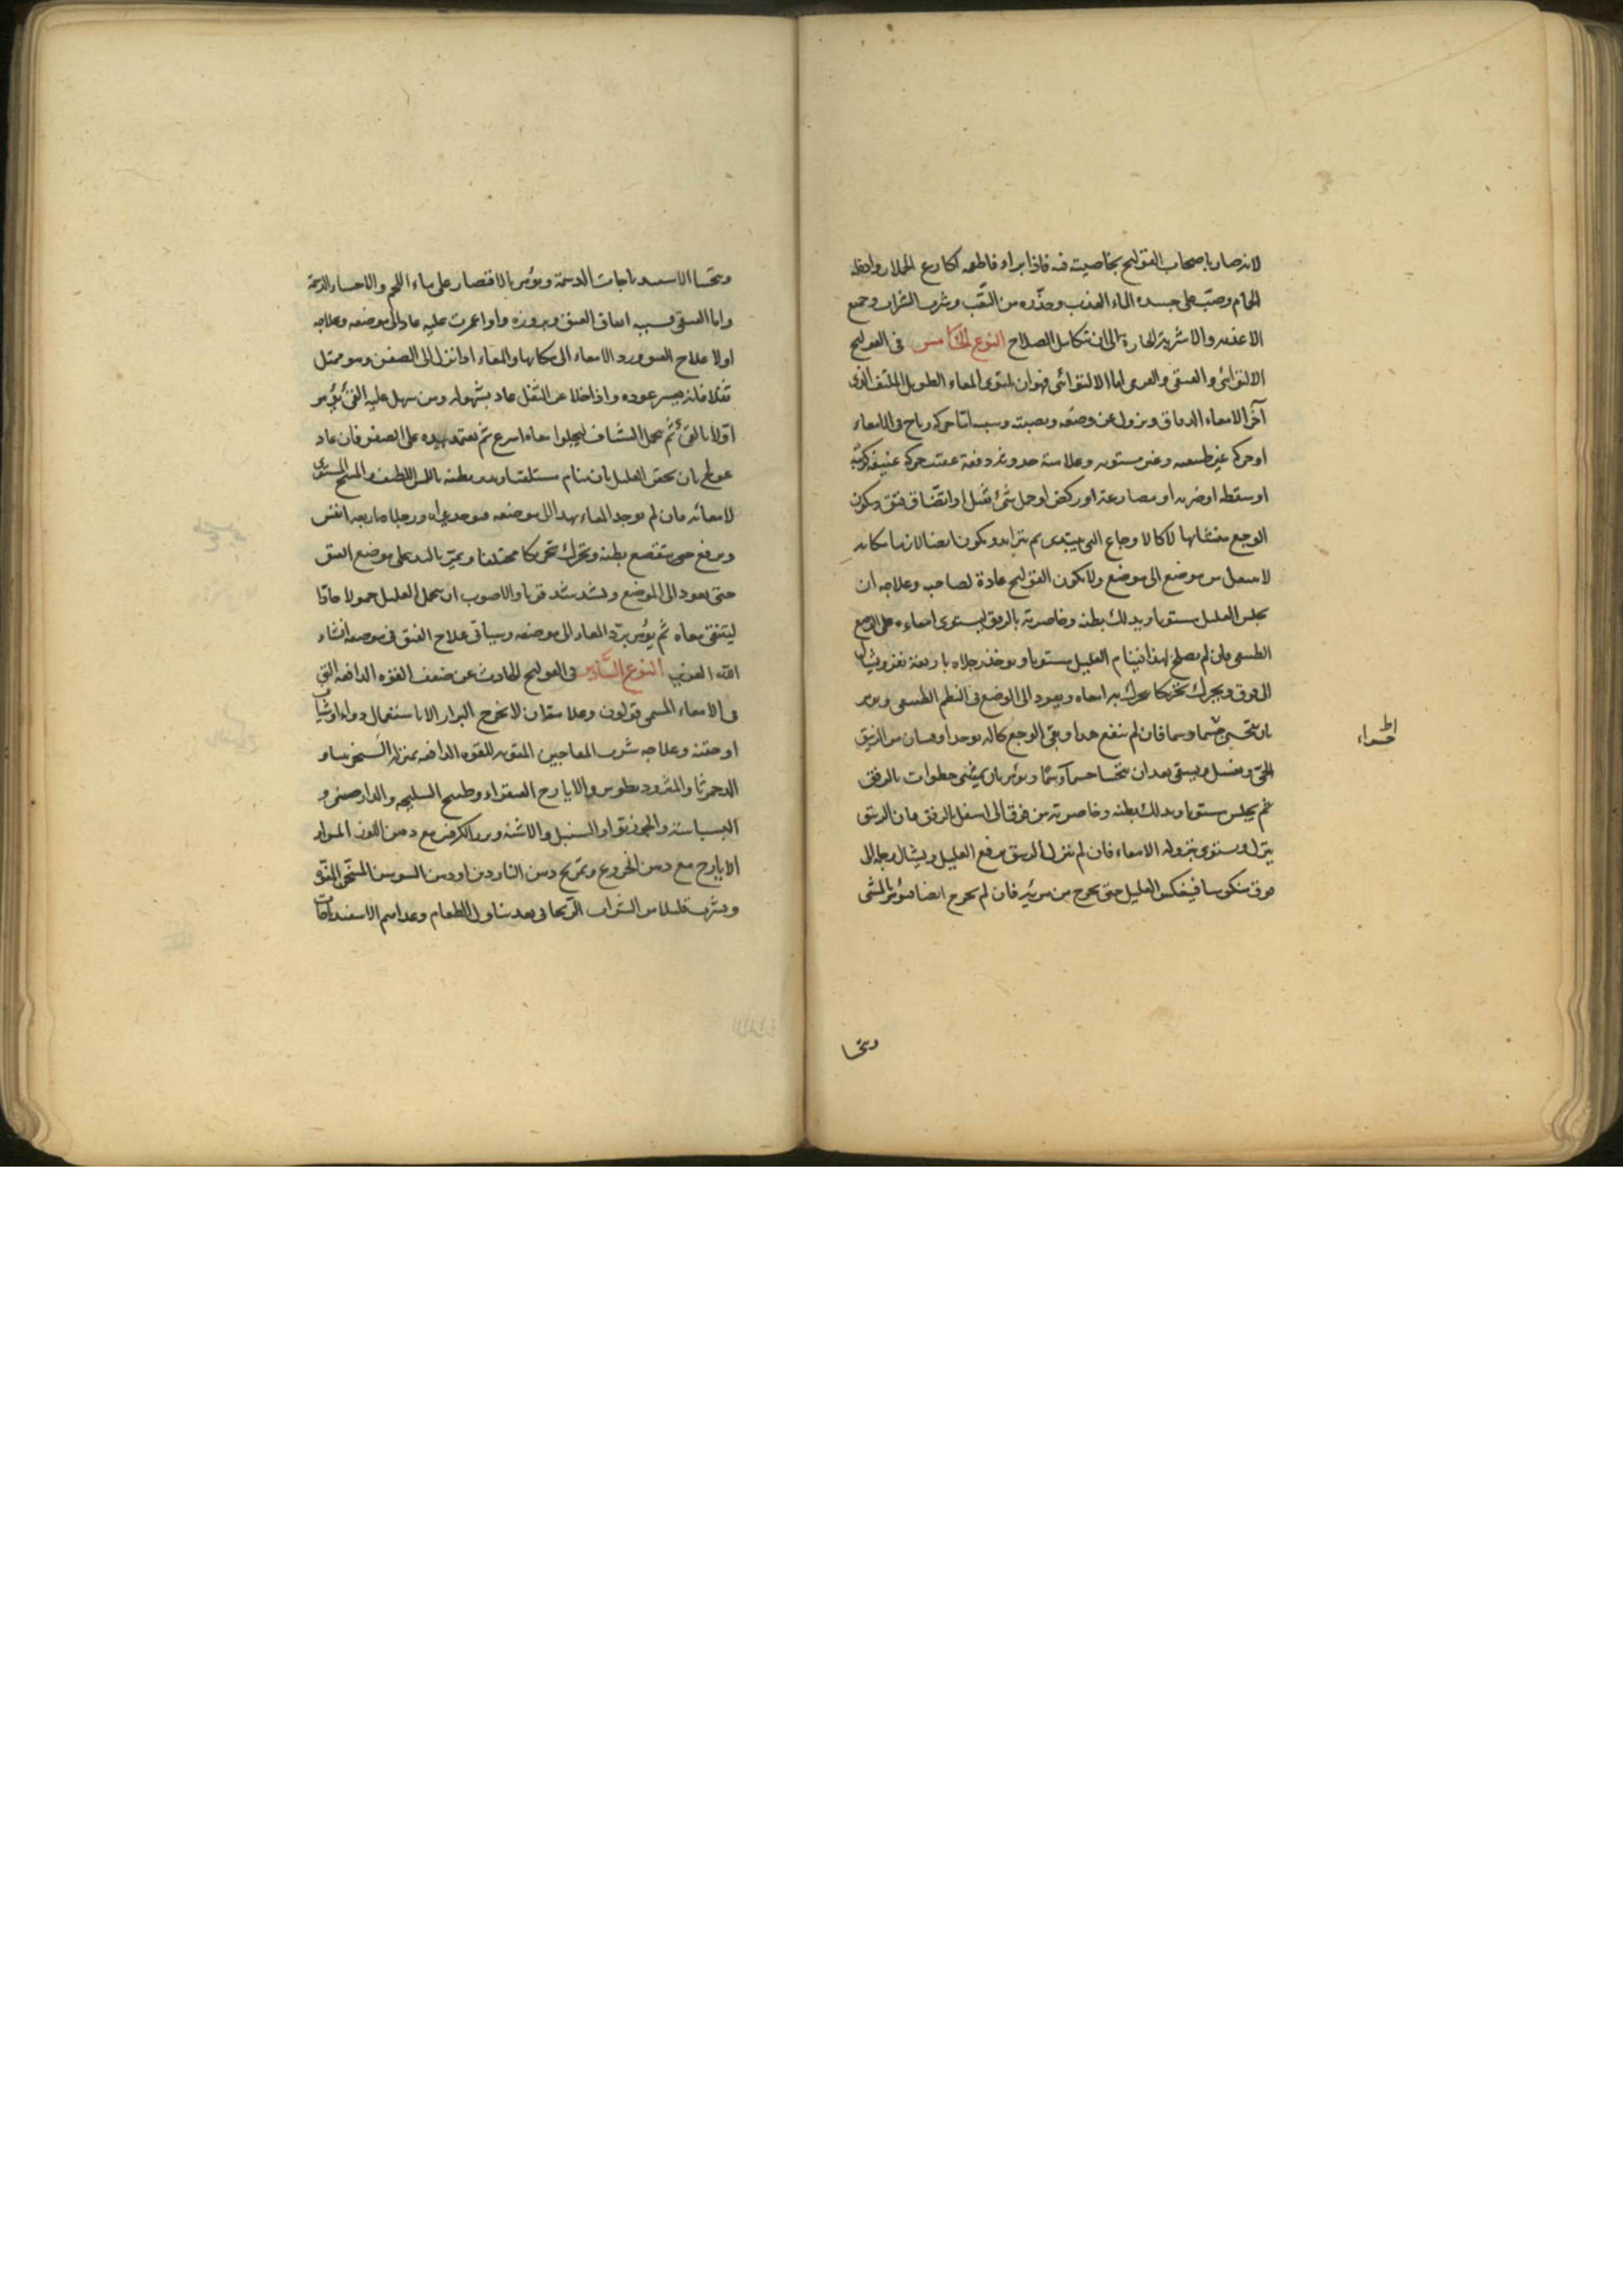 لانه ضار باصحاب القولنج بخاصيته فيه فاذا برأ فاطعمه اكارع الحملان وادخله
الحمام وصب على جسده الماء العذب وحذره من التعب وشرب الشراب وجميع
الاغذيه والاشربة الحارة الى ان يتكامل الصلاح النوع الخامس فى القولنج
الالتوائى والفتقى اما الالتوائى فهو ان يلتوى المعاء الطويل الملتف الذى
آخر الامعاء الدقاق ويزول عن وضعه ونصبته وسببه اما حركه رياح فى الامعاء
او حركه غير طبيعيه وغير مستويه وعلامته حدوثه دفعة عقيب حركه عنيفه
او سقطه او ضربه او مصارعة او ركض او حمل شئ ثقيل او اتفاق فتق ويكون
الوجع متشابها لا كالاوجاع التى يبتدى ثم يتزايد ويكون ايضا لازما مكانه
لا ينتقل من موضع الى موضع ولا يكون القولنج عادة لصاحبه وعلاجه ان
يجلس العليل مستويا ويدلك بطنه وخاصرته بالرفق ليستوى امعاءه على الوضع
الطبيعى فان لم يصلح بهذا فينام العليل مستويا ويوخذ رجلاه باربعة نفر ويشال
الى فوق ويحرك تحريكا يتحرك به امعاه ويعود الى الوضع فى النظم الطبيعى ويومر
بان يتحسى حسا دسما فان لم ينفع هذا وبقى الوجع بحاله يوخذ من الزيبق
الحى ويغسل ويسقى بعد ان يتحسا حسآ دسما ويؤمر بان يمشى خطوات بالرفق
ثم يجلس مستويا ويدلك بطنه وخاصرته من فوق الى اسفل بالرفق فان الزيبق
ينزل ويستوى بنزوله الامعاء فان لم ينزل الزيبق يرفع العليل ويشال رجله الى
فوق منكوسا العليل حتى يخرج من مرئيه فان لم يخرج ايضا فيؤمر بالمشى
حسواء
ويتحسا
ويتحسا الاسفيدباجات الدسمة ويؤمر بالاقتصار على ماء اللحم والاحساء الدسمة
واما الفتقى فسببه اتفاق الفتق وبروزه واذا غمزت عليه عاد الى موضعه وعلاجه
اولا علاج الفتق ورد الامعاء الى مكانها والمعاء اذا نزل الى الصفن وهو ممتلى
ثفلا فانه يعسر عوده واذا خلا عن الثفل عاد بسهوله ومن سهل عليه القئ يؤمر
اولا بالقئ ثم يحمل الشياف ليخلو امعاه اسرع ثم يعتمد بيده على الصفن فان عاد
عولج بان يحقن العليل بان ينام مستلقيا ويدبر بطنه باللمس اللطيف والمسح المستوى
لامعائه فان لم يوجد المعاء يهدا الى موضعه فيوخذ يداه ورجلاه باربعه انفس
ويرفع حتى يتقصع بطنه ويحرك تحريكا مختلفا ويمر باليد على موضع الفتق
حتى يعود الى الموضع ويشد شد قويا والاصوب ان يحمل العليل حمولا حادا
ليتنقى معاه ثم يؤمر برد المعاء الى موضعه وسياتى علاج الفتق فى موضعه انشاء
الله العزيز النوع السادس فى القولنج الحادث عن ضعف القوه الدافعه التى
فى الامعاء المسمى قولون وعلامته ان لا يخرج البراز الا باستعمال دواء او شياف
او حقنه وعلاجه شرب المعاجين المقويه للقوه الدافعه بمنزله السجزنيا و
الدحمرثا والمثروديطوس والايارج الفيقراء وطبيخ السليخه والدارصينى و
البسباسة والجوزبوا والسنبل والاشنه وبزر الكرفس مع دهن اللوز المر او
الايارج مع دهن الخروع وتمريخ دهن الناردين او دهن السوسن المسخن
ويشرب قليلا من الشراب الريحانى بعد تناول الطعام وغذاهم الاسفيدباجات